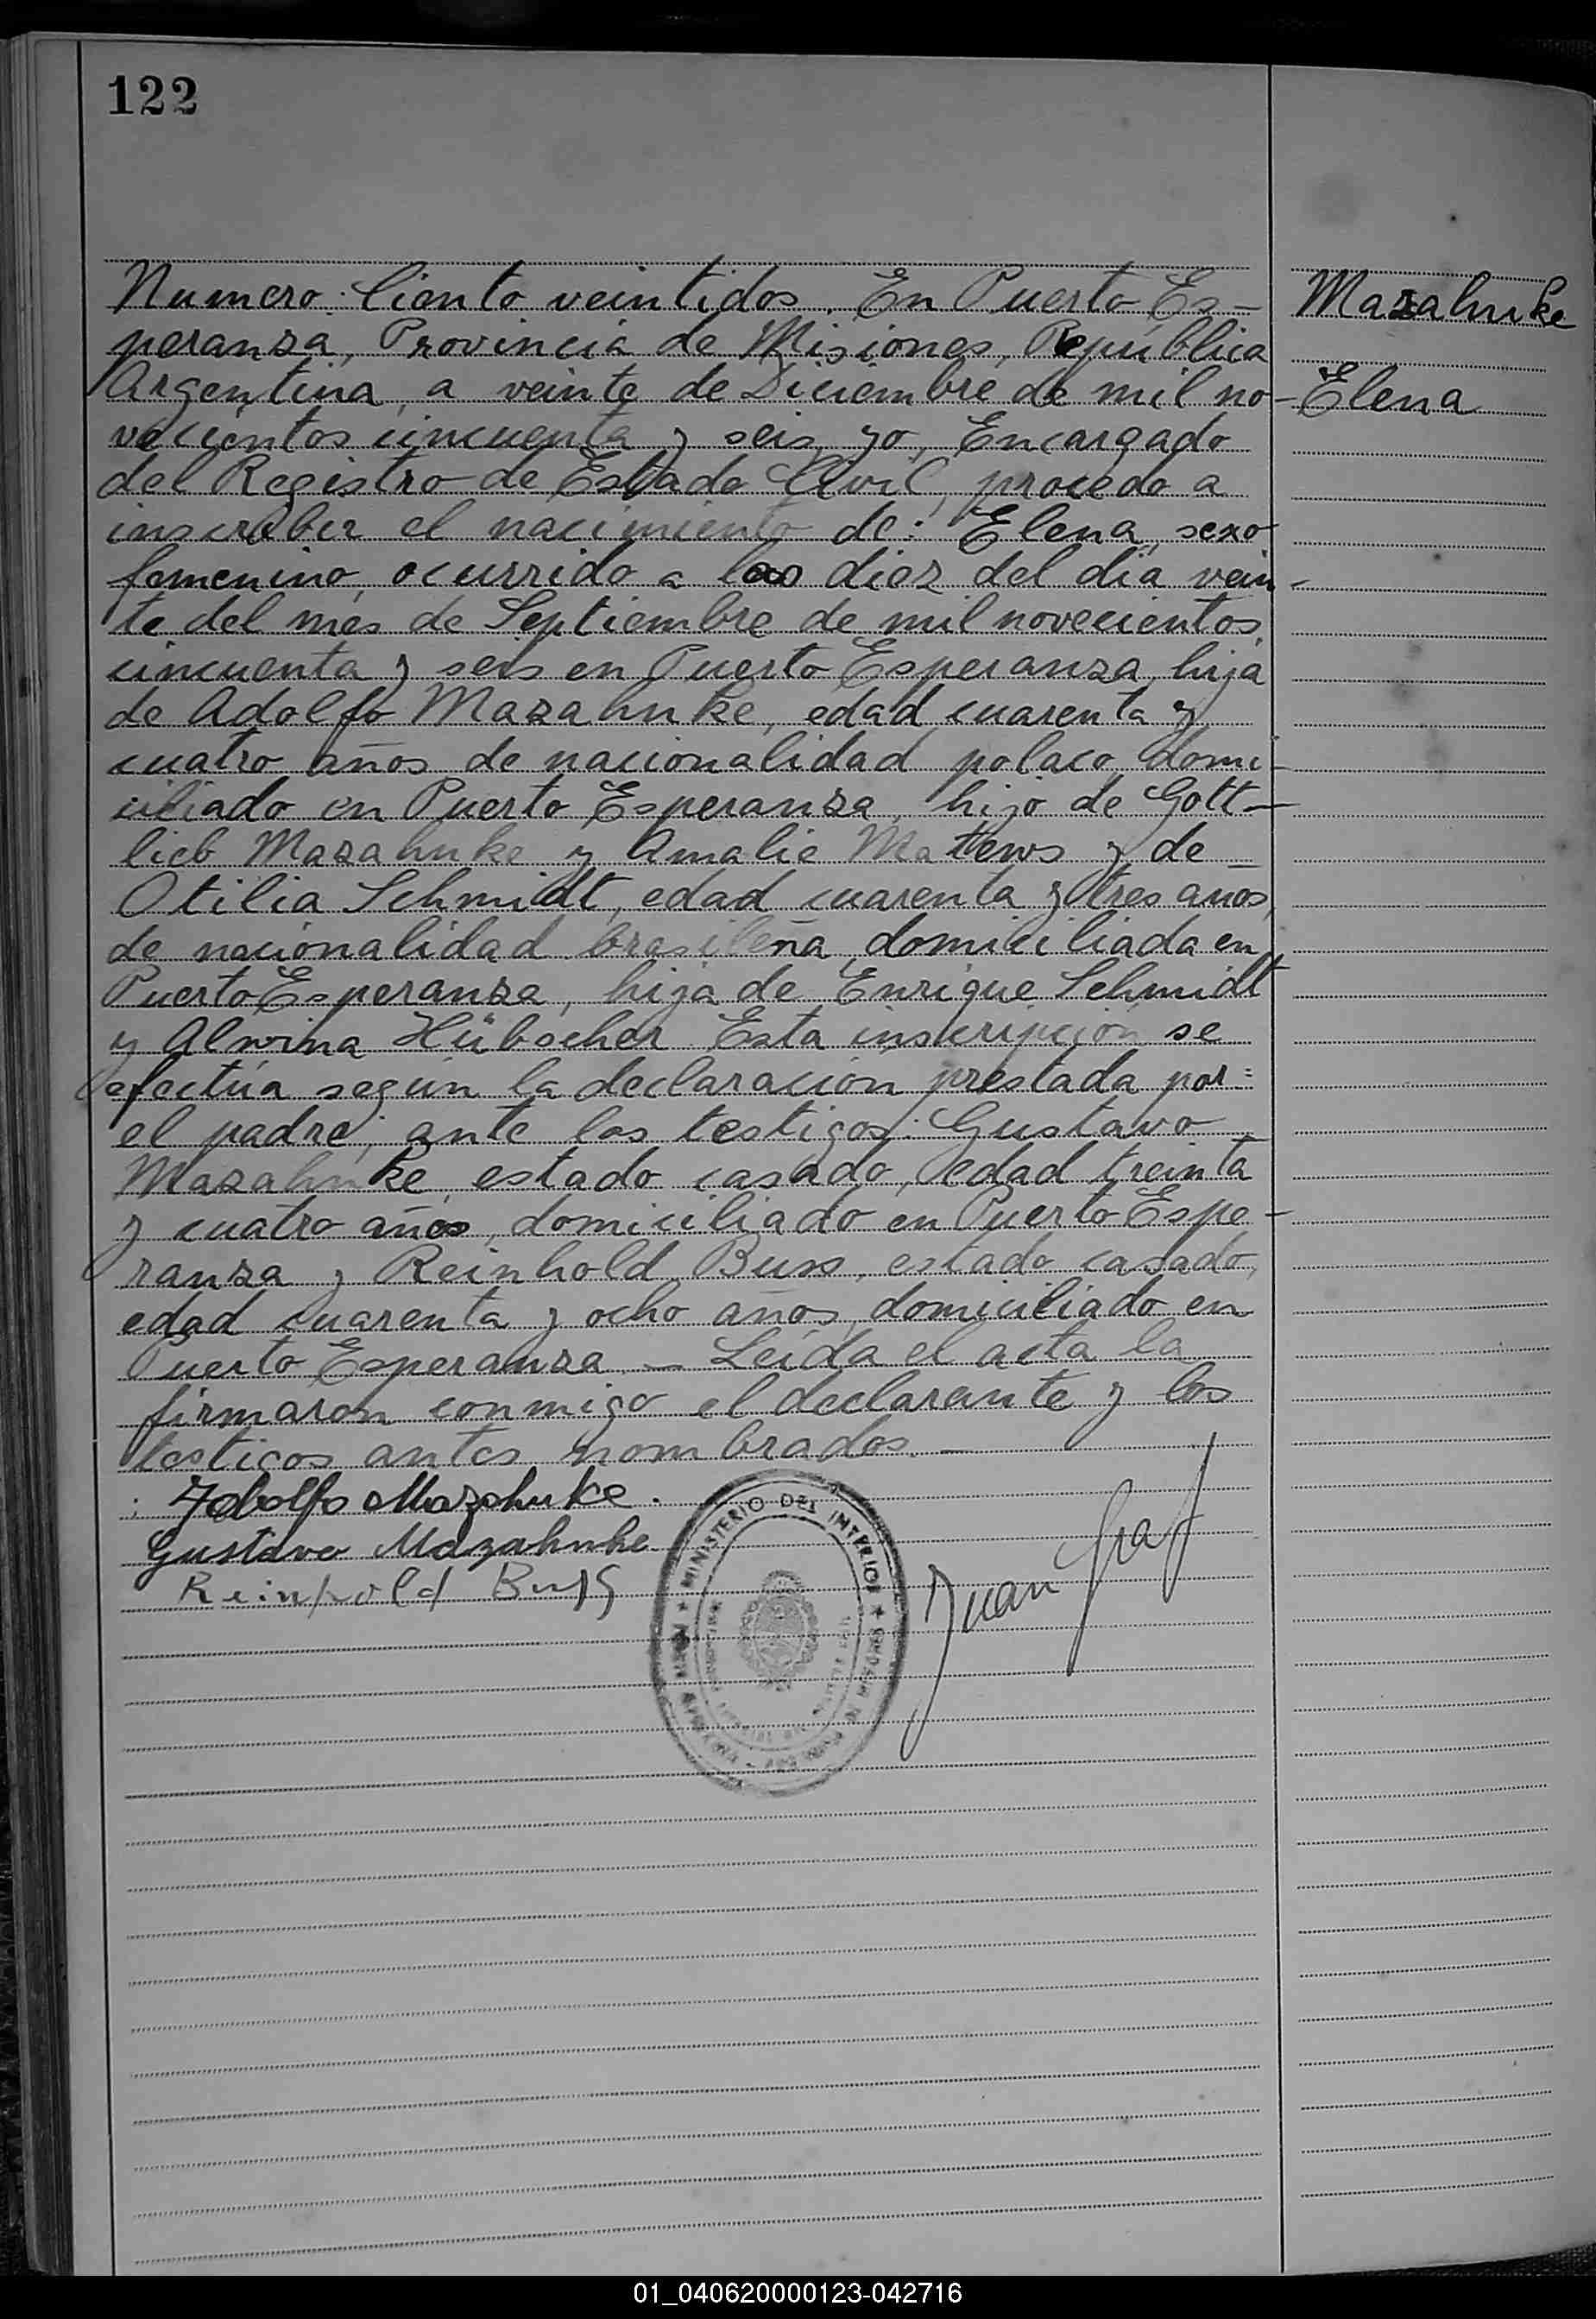 122
Numero: Ciento veintidos. En Puerto Es-
Mazahnke
peranza, Provincia de Misiones, República
Argentina, a veinte de Diciembre de mil no-
Elena
vecientos cincuenta y seis, yo, Encargado
del Registro de Estado Civil, procedo a
inscriber el nacimiento de: Elena, sexo
femenino, ocurrido a las diez del día vein-
te del mes de Septiembre de mil novecientos
cincuenta y seis en Puerto Esperanza, hija
de Adolfo Mazahnke, edad cuarenta y
cuatro años de nacionalidad polaco, domi-
ciliado en Puerto Esperanza, hijo de Gott-
lieb Mazahnke y Amalie Mattews y de
Otilia Schmidt, edad cuarenta y tres años,
de nacionalidad brasileña, domiciliada en
Puerto Esperanza, hija de Enrique Schmidt
y Alwina Hübscher. Esta inscripción se
efectúa según la declaración prestada por:
el padre; ante los testigos: Gustavo
Mazahnke, estado casado, edad treinta
y cuatro años, domiciliado en Puerto Espe-
ranza y Reinhold Buss, estado casado,
edad cuarenta y ocho años, domiciliado en
Puerto Esperanza. — Leída el acta la
firmaron conmigo el declarante y los
testigos antes nombrados. —
Adolfo Mazahnke.
Gustavo Mazahnke
Reinhold Buss
Juan Graf
MINISTERIO DEL INTERIOR
01_040620000123-042716